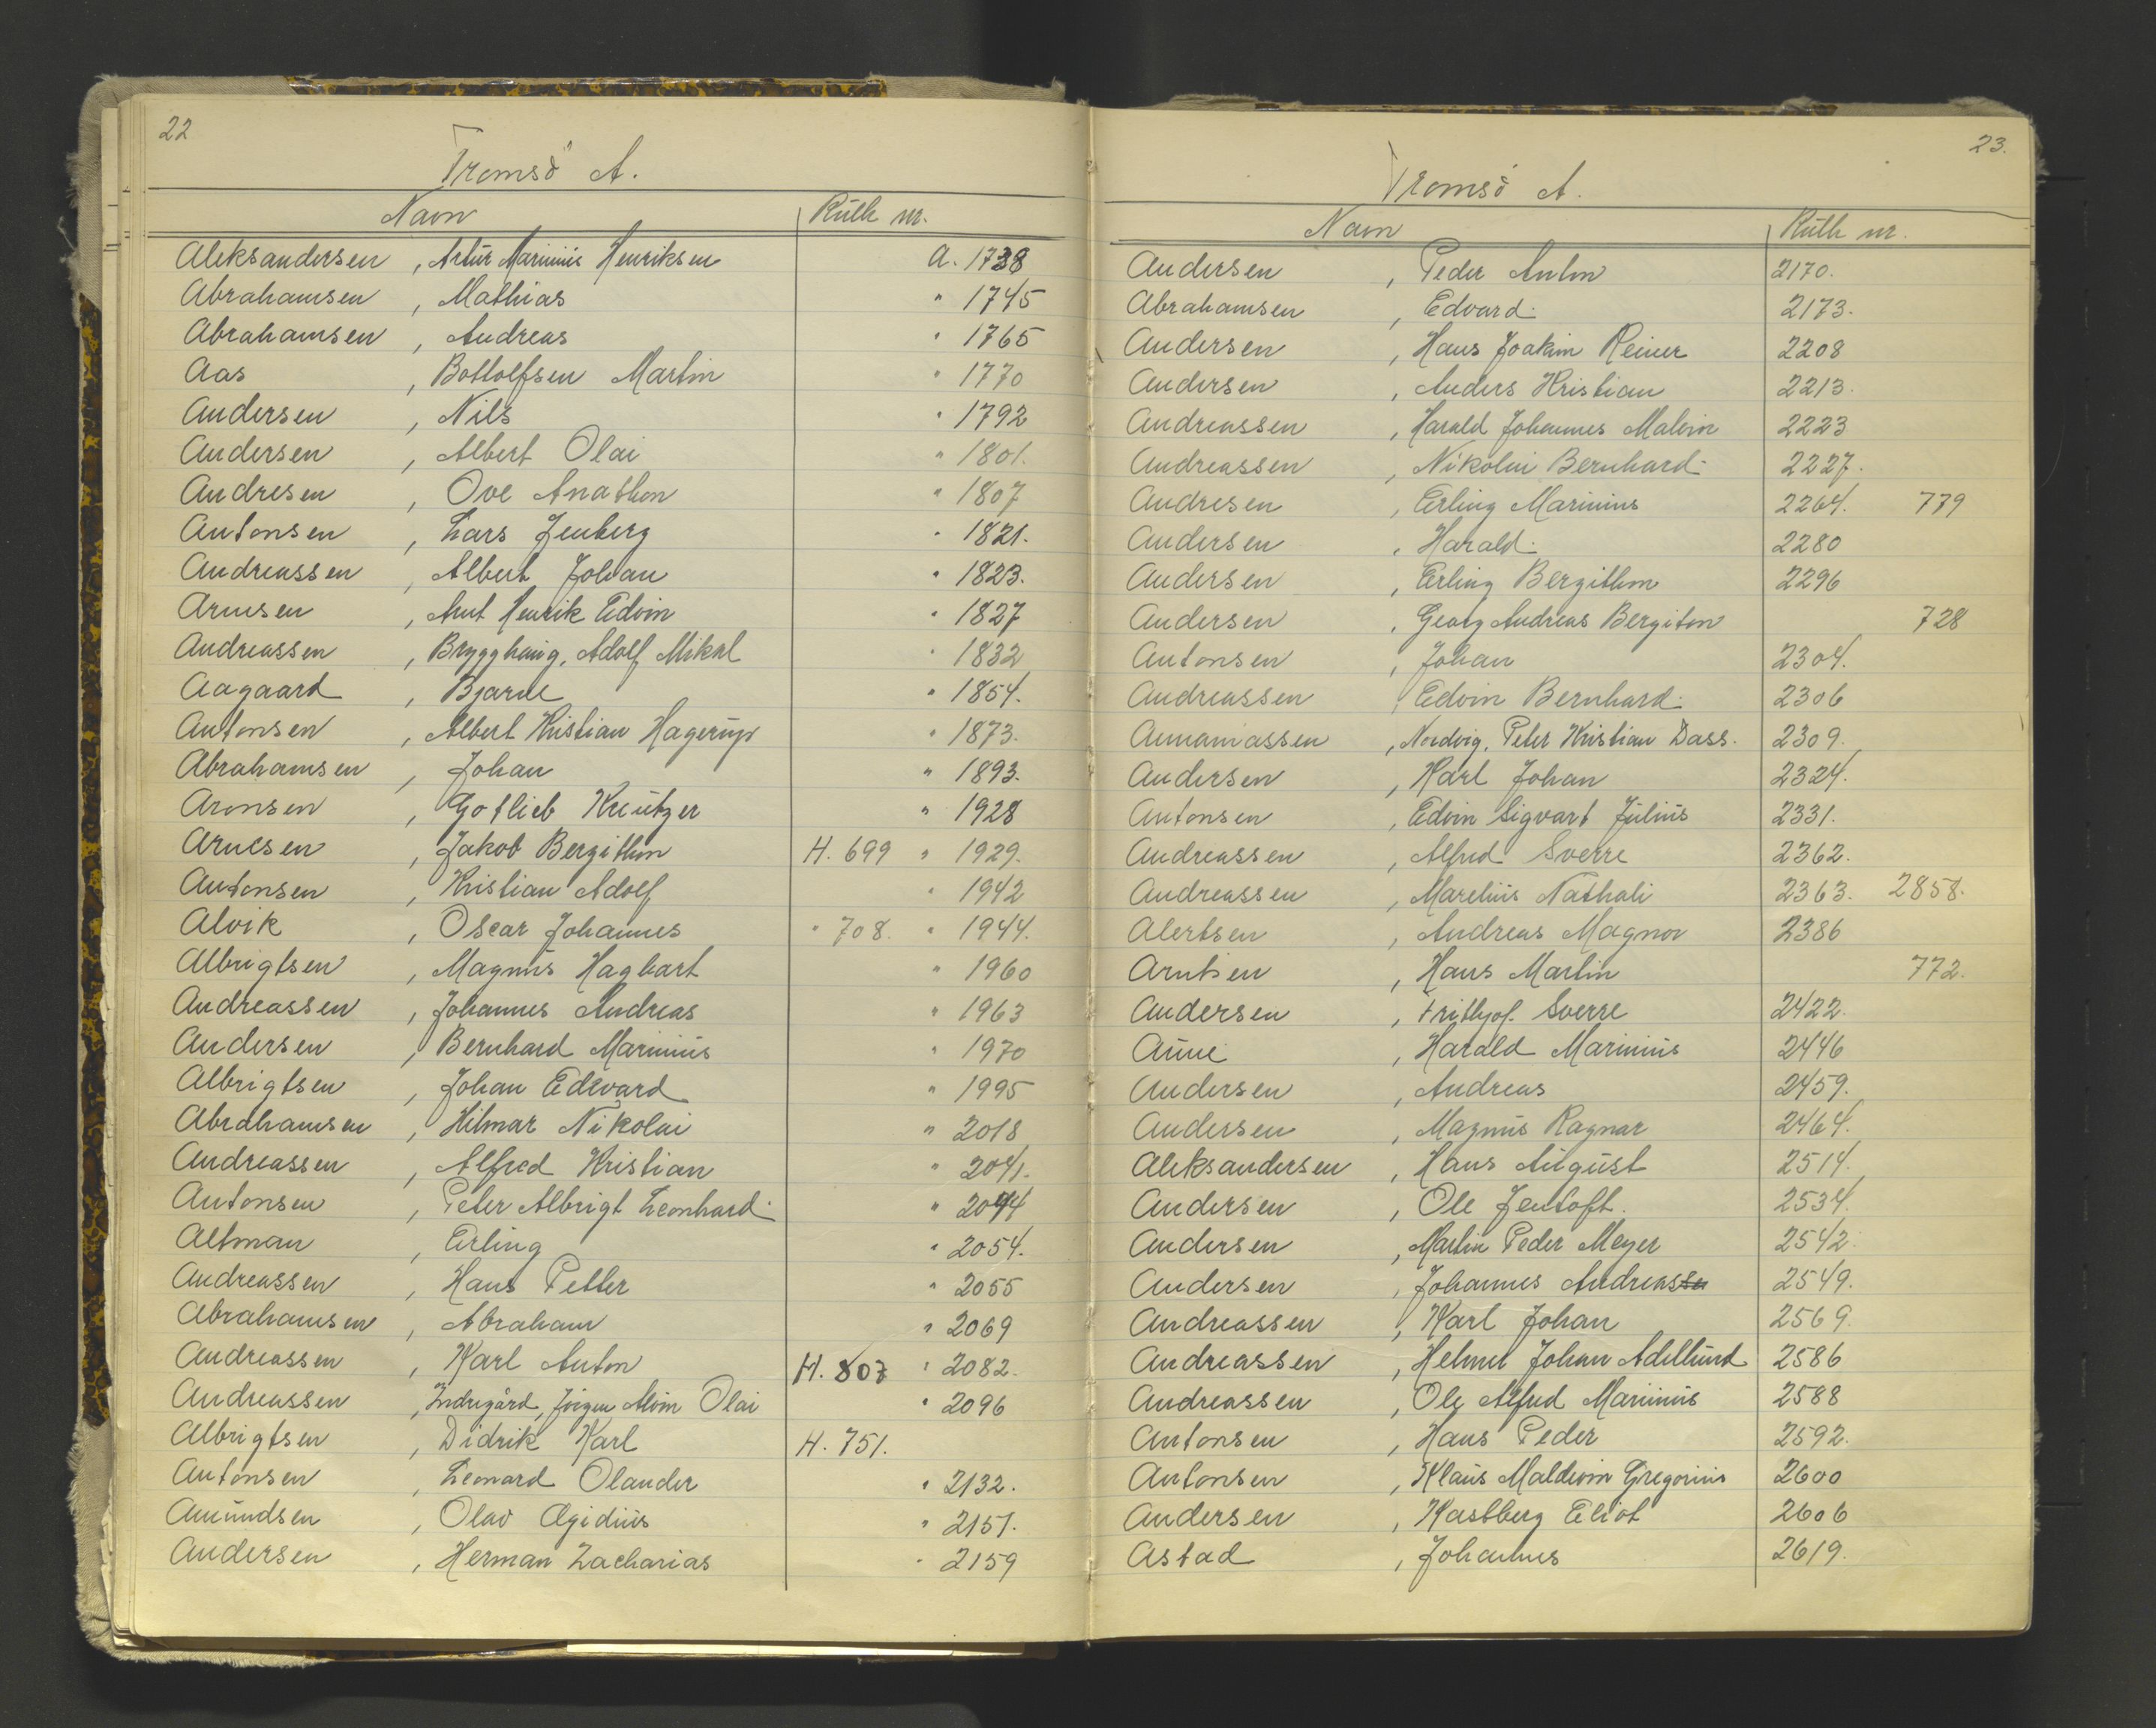 22
Tromsö A.
Navn Rulle nr.
Aleksandersen , Artur Marinius Henriksen A. 1738
Abrahamsen , Mathias " 1745
Abrahamsen , Andreas " 1765
Aas , Bottolfsen Martin " 1770
Andersen , Nils " 1792
Andersen , Albert Olai " 1801.
Andresen , Ove Anathon " 1807
Antonsen , Lars Jenberg " 1821.
Andreassen , Albert Johan " 1823.
Arnesen , Arnt Henrik Edvin " 1827
Andreassen , Brygghaug, Adolf Mikal " 1832
Aagaard , Bjarne " 1854.
Antonsen , Albert Kristian Hagerup " 1873.
Abrahamsen , Johan " 1893.
Aronsen , Gotlieb Kreutzer " 1928
Arnesen , Jakob Bergithon H. 699 " 1929.
Antonsen , Kristian Adolf " 1942
Alvik , Oscar Johannes " 708. " 1944.
Albrigtsen , Magnus Hagbart " 1960
Andreassen , Johannes Andreas " 1963
Andersen , Bernhard Marinius " 1970
Albrigtsen , Johan Edevard " 1995
Abrahamsen , Hilmar Nikolai " 2018
Andreassen , Alfred Kristian " 2041.
Antonsen , Peter Albrigt Leonhard " 2044
Altman , Erling " 2054.
Andreassen , Hans Petter " 2055
Abrahamsen , Abraham " 2069
Andreassen , Karl Anton H. 807 " 2082.
Andreassen , Indregård, Jörgen Alvin Olai " 2096
Albrigtsen , Didrik Karl H. 751.
Antonsen , Leonard Olander " 2132.
Amundsen , Olav Ægidius " 2151.
Andersen , Herman Zacharias " 2159
23.
Tromsö A.
Navn Rulle nr.
Andersen , Peder Anton 2170.
Abrahamsen , Edvard 2173.
Andersen , Hans Joakim Reiner 2208
Andersen , Anders Kristian 2213.
Andreassen , Harald Johannes Malvin 2223
Andreassen , Nikolai Bernhard 2227.
Andresen , Erling Marinius 2264. 779
Andersen , Harald 2280
Andersen , Erling Bergithon 2296
Andersen , Georg Andreas Bergiton 728
Antonsen , Johan 2304.
Andreassen , Edvin Bernhard 2306
Annaniassen , Nordvig, Peter Kristian Dass. 2309.
Andersen , Karl Johan 2324.
Antonsen , Edvin Sigvart Julius 2331.
Andreassen , Alfred Sverre 2362.
Andreassen , Marelius Nathali 2363. 2858.
Alertsen , Andreas Magnor 2386
Arntsen , Hans Martin 772.
Andersen , Frithjof Sverre 2422.
Aune , Harald Marinius 2446
Andersen , Andreas 2459.
Andersen , Magnus Ragnar 2464.
Aleksandersen , Hans August 2514.
Andersen , Ole Jentoft. 2534.
Andersen , Martin Peder Meyer 2542
Andersen , Johannes Andreassen 2549.
Andreassen , Karl Johan 2569.
Andreassen , Helmer Johan Adellund 2586
Andreassen , Ole Alfred Marinius 2588
Antonsen , Hans Peder 2592.
Antonsen , Klaus Maldevin Gregorius 2600
Andersen , Kastberg Eliot 2606
Astad , Johannes 2619.